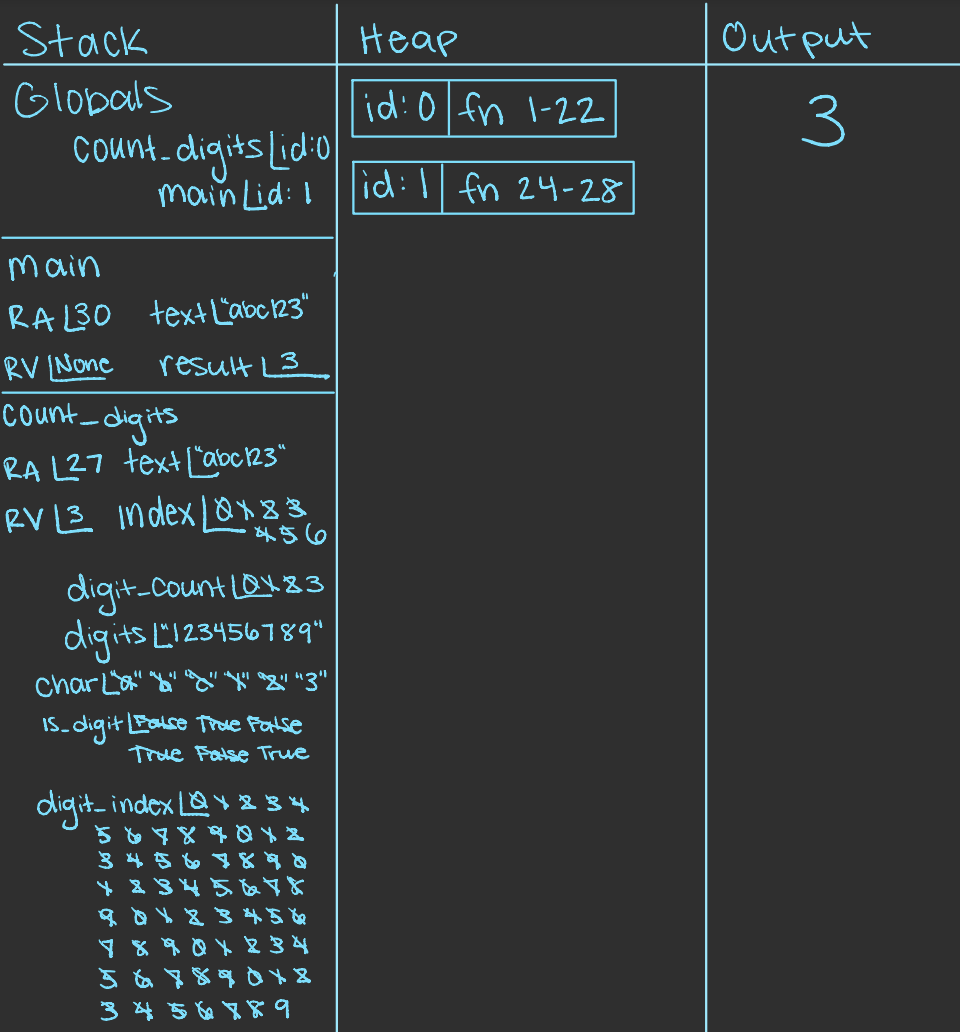 Stack
Globals
count_digits id:0
main id:1
main
RA 30 text "abc123"
RV None result 3
count_digits
RA 27 text "abc123"
RV 3 index 0 1 2 3
4 5 6
digit_count 0 1 2 3
digits "123456789"
char "a" "b" "c" "1" "2" "3"
is_digit False True False
True False True
digit_index 0 1 2 3 4
5 6 7 8 9 0 1 2
3 4 5 6 7 8 9 0
1 2 3 4 5 6 7 8
9 0 1 2 3 4 5 6
7 8 9 0 1 2 3 4
5 6 7 8 9 0 1 2
3 4 5 6 7 8 9
Heap
id:0 fn 1-22
id:1 fn 24-28
Output
3